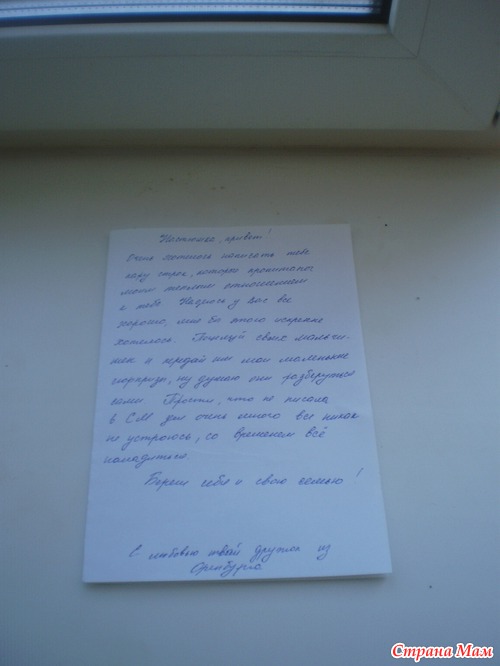 Настюшка, привет!
Очень хотелось написать тебе
пару строк, которые пропитаны
моим теплым отношением
к тебе. Надеюсь у вас все
хорошо, мне бы этого искренне
хотелось. Поцелуй своих мальчи-
шек и передай им мои маленькие
сюрпризы, ну думаю они разберуться
сами. Прости, что не писала
в СМ дел очень много все никак
не устроюсь, со временем всё
наладиться.
Береги себя и свою семью!
С любовью твой дружок из
Оренбурга.
Страна Мам